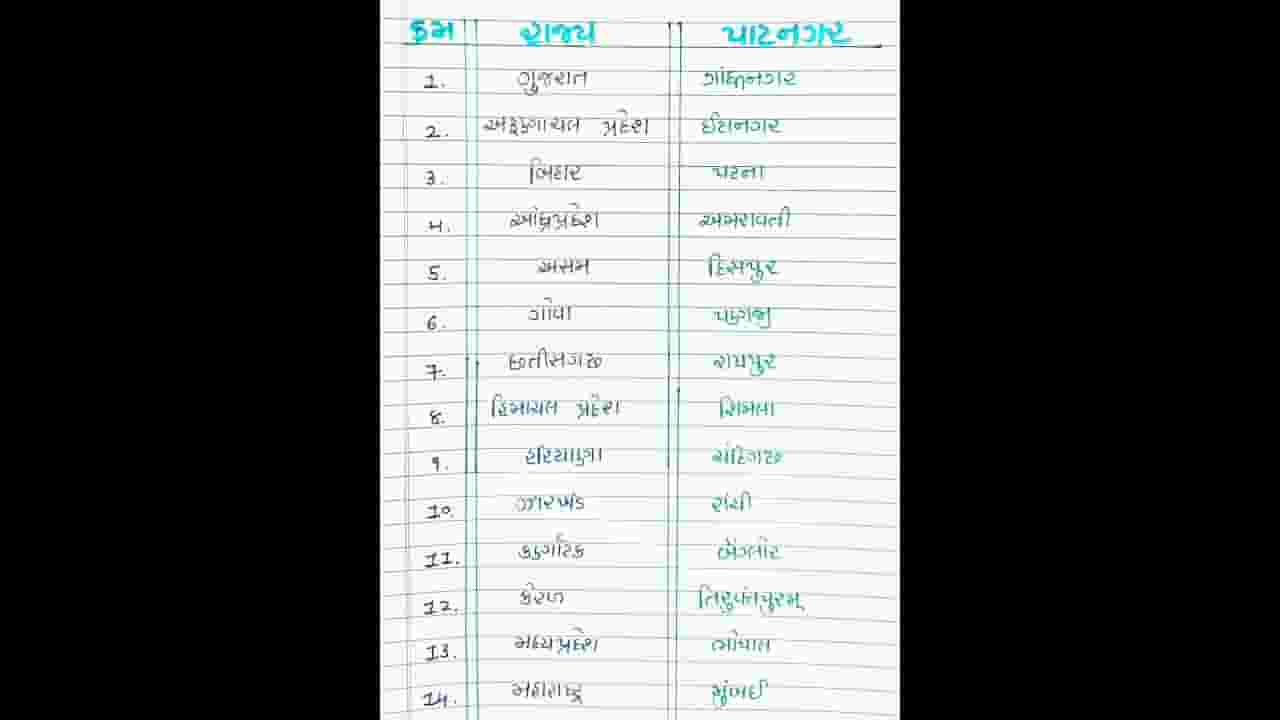 ક્રમ રાજ્ય પાટનગર
1. ગુજરાત ગાંધીનગર
2. અરૂણાચલ પ્રદેશ ઈટાનગર
3. બિહાર પટના
4. આંધ્રપ્રદેશ અમરાવતી
5. અસમ દિસપુર
6. ગોવા પણજી
7. છત્તીસગઢ રાયપુર
8. હિમાચલ પ્રદેશ શિમલા
9. હરિયાણા ચંદિગઢ
10. ઝારખંડ રાંચી
11. કર્ણાટક બેંગ્લોર
12. કેરળ તિરુવનંતપુરમ્
13. મધ્યપ્રદેશ ભોપાલ
14. મહારાષ્ટ્ર મુંબઈ